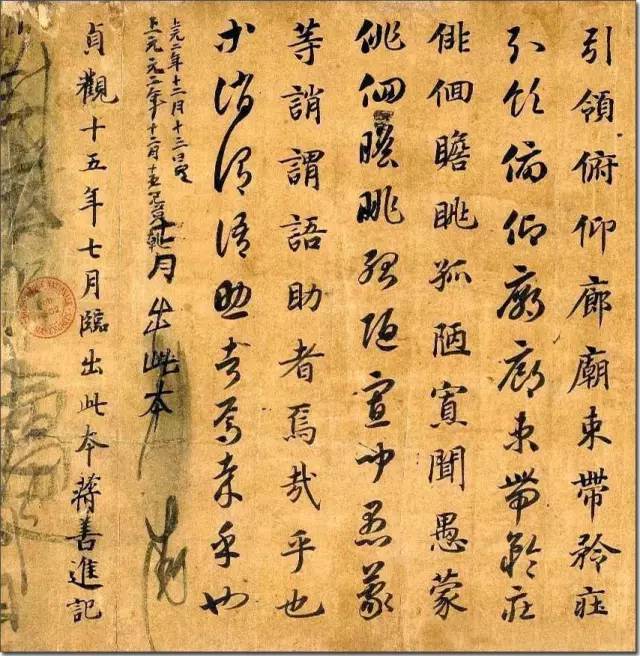 引領俯仰廊廟束帶矜莊
引領俯仰廊廟束帶矜莊
俳佪瞻眺孤陋寡聞愚蒙
俳佪瞻眺孤陋寡聞愚蒙
等誚謂語助者焉哉乎也
等誚謂語助者焉哉乎也
上元二年十二月十三日
上元元二年十二月
七月出此本
貞觀十五年七月臨出此本蔣善進記